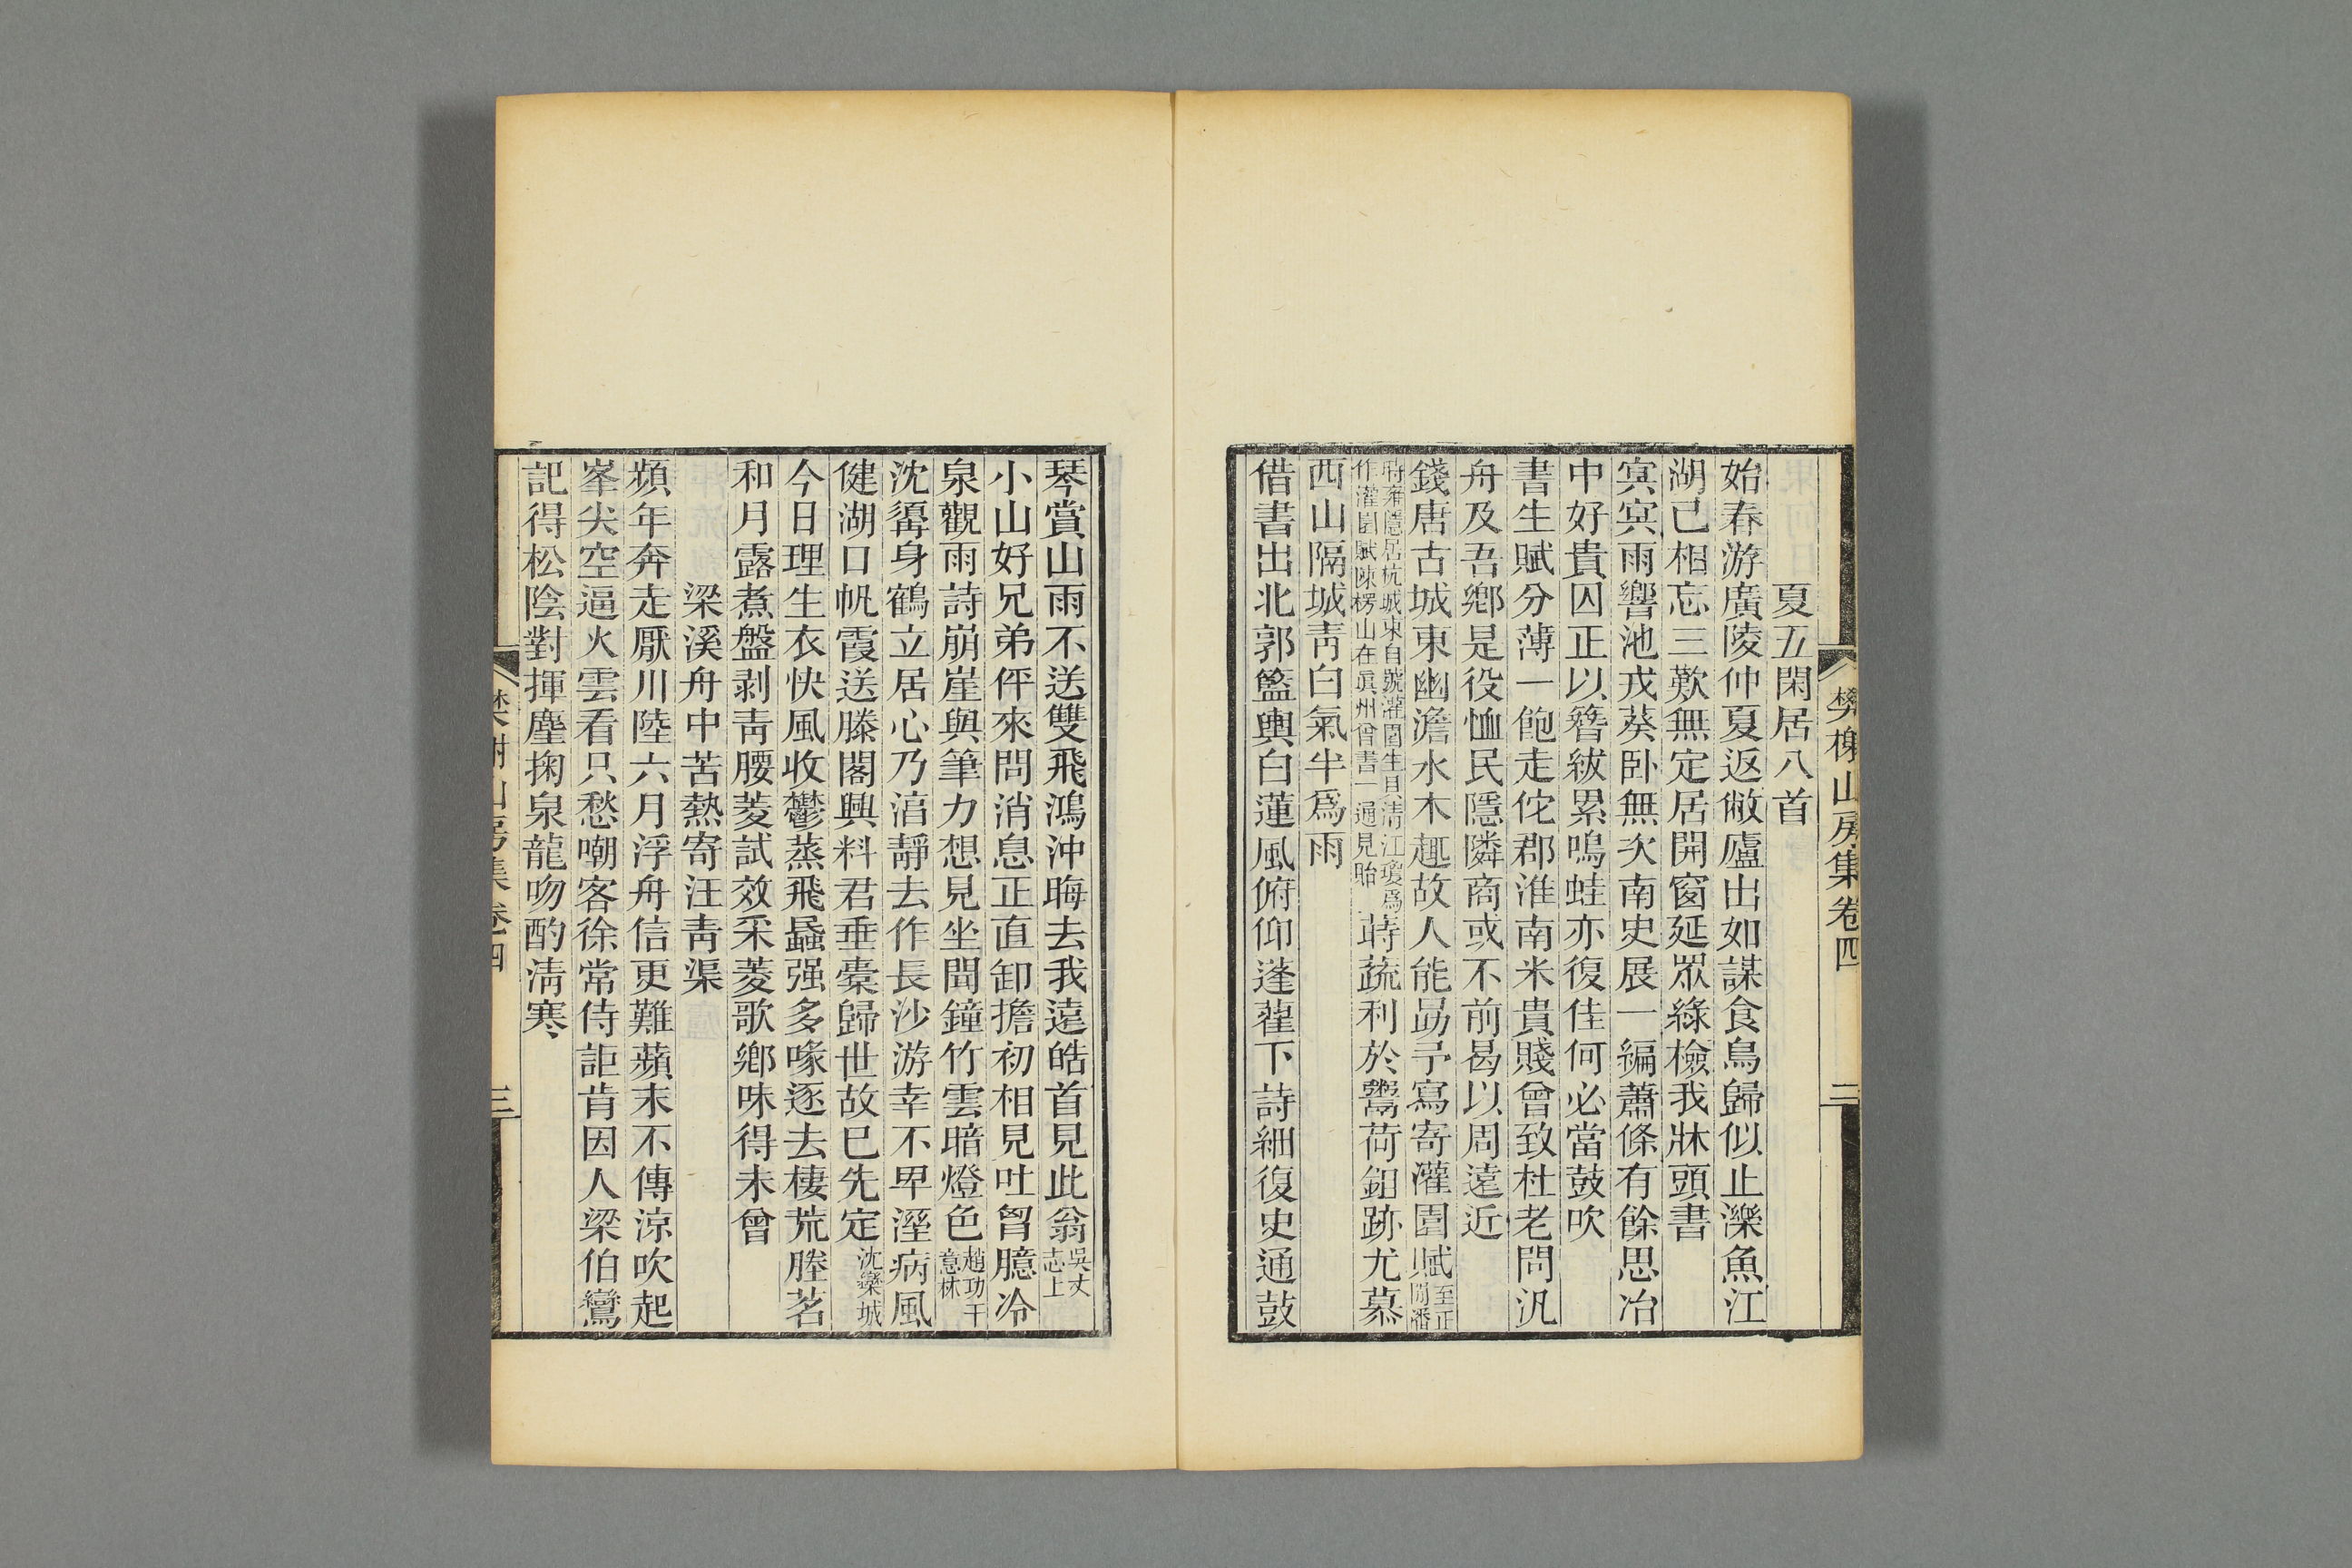 樊榭山房集卷四
二
夏五閑居八首
始春游廣陵仲夏返敝廬出如謀食鳥歸似止濼魚江
湖已相忘三歎無定居開窗延眾綠檢我牀頭書
冥冥雨響池戎葵卧無次南史展一編蕭條有餘思冶
中好貴囚正以簪紱累鳴蛙亦復佳何必當鼓吹
書生賦分薄一飽走佗郡淮南米貴賤曾致杜老問汎
舟及吾鄉是役恤民隱隣商或不前曷以周遠近
錢唐古城東幽澹水木趣故人能勗予寫寄灌園賦至正間潘
時雍隱居杭城東自號灌園生貝清江瓊爲
作灌園賦陳楞山在眞州曾書一通見貽
蒔蔬利於鬻荷鉏跡尤慕
西山隔城靑白氣半爲雨
借書出北郭籃輿白蓮風俯仰蓬藋下詩細復史通鼓
琴賞山雨不送雙飛鴻沖晦去我遠皓首見此翁吳丈志上
小山好兄弟伻來問消息正直卸擔初相見吐胷臆冷
泉觀雨詩崩崖與筆力想見坐聞鐘竹雲暗燈色趙功千意林
沈彛身鶴立居心乃湻靜去作長沙游幸不卑溼病風
健湖口帆霞送滕閣興料君垂橐歸世故已先定沈欒城
今日理生衣快風收鬱蒸飛蟁强多喙逐去棲荒塍茗
和月露煮盤剥靑腰菱試效采菱歌鄉味得未曾
梁溪舟中苦熱寄汪靑渠
頻年奔走厭川陸六月浮舟信更難蘋末不傳涼吹起
峯尖空逼火雲看只愁嘲客徐常侍詎肯因人梁伯鸞
記得松陰對揮麈掬泉龍吻酌淸寒
樊榭山房集卷四
三